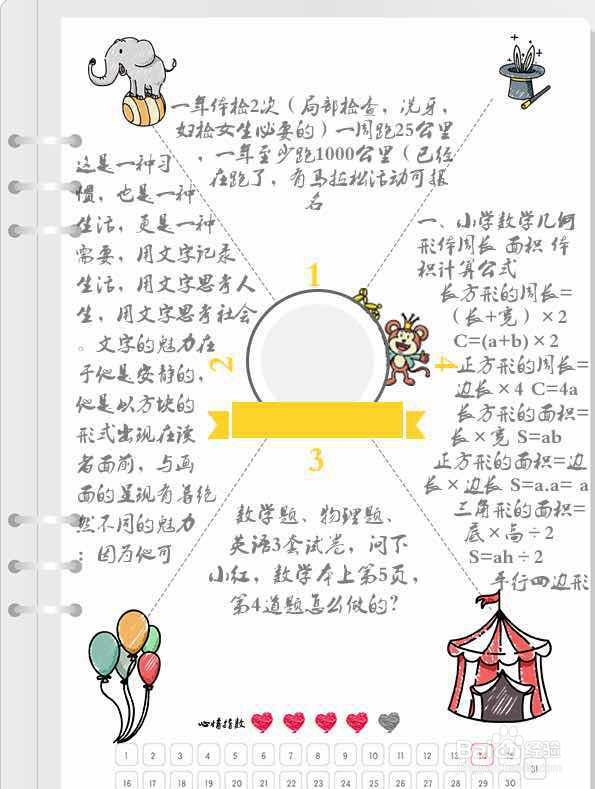 一年体检2次（局部检查，洗牙，
妇检女生必要的）一周跑25公里
，一年至少跑1000公里（已经
在跑了，有马拉松活动可报
名
1
这是一种习
惯，也是一种
生活，更是一种
需要，用文字记录
生活，用文字思考人
生，用文字思考社会
。文字的魅力在
于他是安静的，
他是以方块的
形式出现在读
者面前，与画
面的呈现有着绝
然不同的魅力
：因为他可
2
一、小学数学几何
形体周长 面积 体
积计算公式
长方形的周长=
（长+宽）×2
C=(a+b)×2
正方形的周长=
边长×4 C=4a
长方形的面积=
长×宽 S=ab
正方形的面积=边
长×边长 S=a.a= a
三角形的面积=
底×高÷2
S=ah÷2
平行四边形
4
3
数学题、物理题、
英语3套试卷，问下
小红，数学本上第5页，
第4道题怎么做的？
心情指数
1 2 3 4 5 6 7 8 9 10 11 12 13 14 15
31
16 17 18 19 20 21 22 23 24 25 26 27 28 29 30
Baidu经验